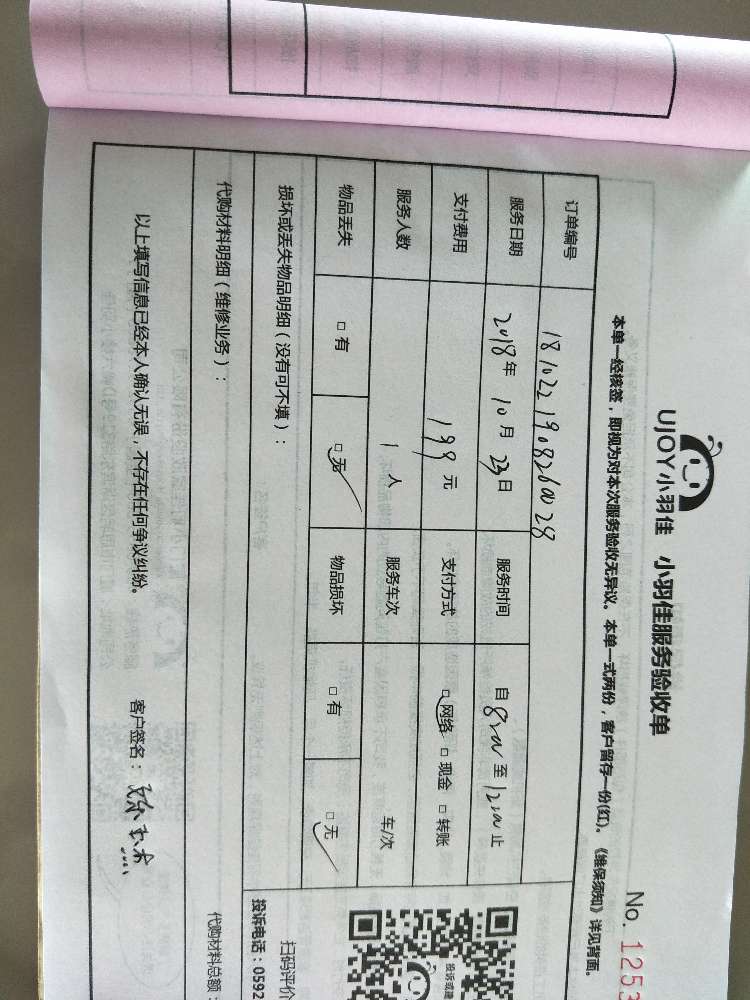 UJOY小羽佳 小羽佳服务验收单
No. 1253
本单一经核签，即视为对本次服务验收无异议。本单一式两份，客户留存一份(红)。《维保须知》详见背面。
订单编号 1810221908260028
服务日期 2018年 10月 23日 服务时间 自 8:00 至 12:00 止
支付费用 199 元 支付方式 □网络 □现金 □转账
服务人数 1 人 服务车次 车/次
物品丢失 □有 □无 物品损坏 □有 □无
损坏或丢失物品明细（没有可不填）：
代购材料明细（维修业务）：
代购材料总额：
以上填写信息已经本人确认无误，不存在任何争议纠纷。 客户签名：
投诉或建
扫码评价
投诉电话：0592